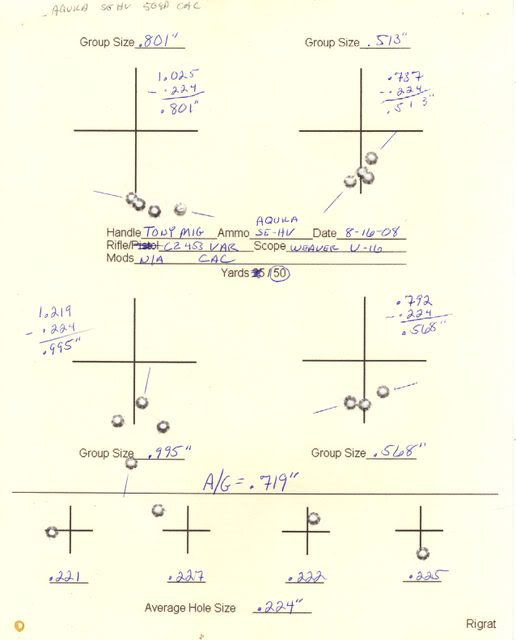 AQUILA SE HV 50YD CAC
Group Size .801" Group Size .513"
1.025 .737
- .224 - .224
.801" .513"
Handle TONY MIG Ammo AQUILA SE-HV Date 8-16-08
Rifle/Pistol CZ 453 VAR Scope WEAVER V-16
Mods N/A CAC
Yards 25 / 50
1.219 .792
- .224 - .224
.995" .568"
Group Size .995" Group Size .568"
A/G = .719"
.221 .227 .222 .225
Average Hole Size .224"
Rigrat